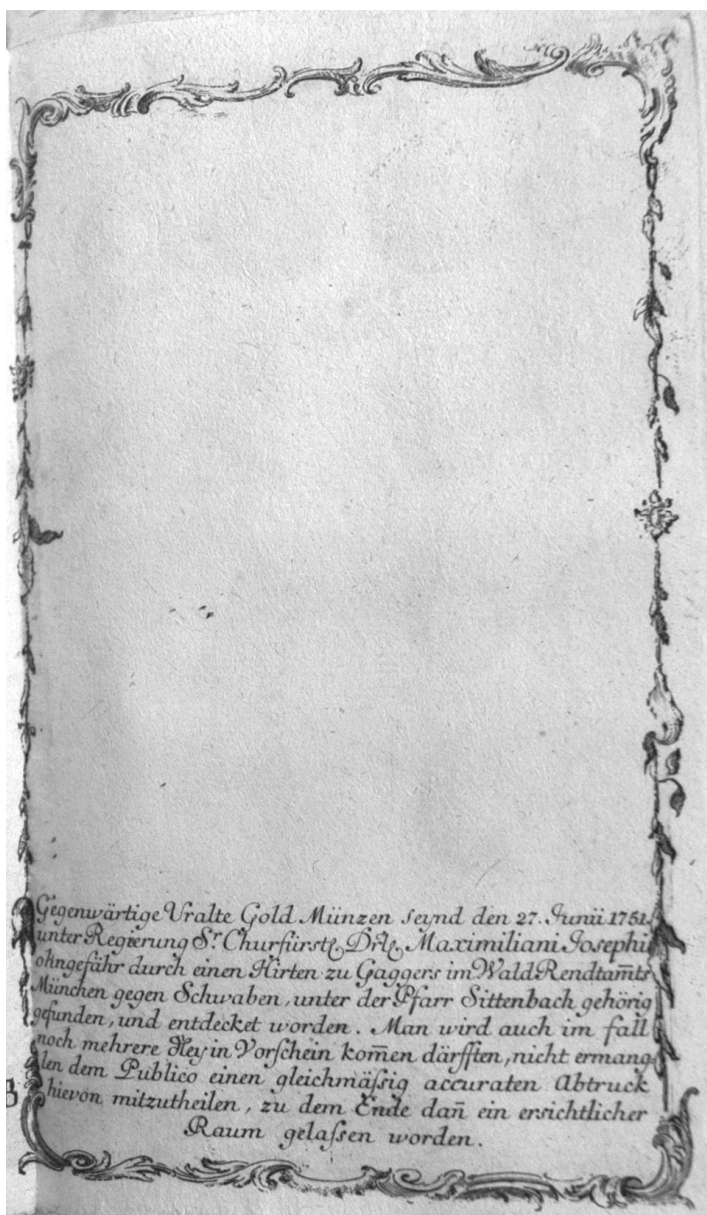 Gegenwärtige Uralte Gold Münzen seynd den 27. Junii 1751.
unter Regierung Sr. Churfürstl. Drl. Maximiliani Josephi
ohngefähr durch einen Hirten zu Gaggers im Wald Rendtam̅ts
München gegen Schwaben, unter der Pfarr Sittenbach gehörig
gefunden, und entdecket worden. Man wird auch im fall
noch mehrere in Vorschein kom̅en därfften, nicht ermang-
len dem Publico einen gleichmäſsig accuraten Abtruck
hievon mitzutheilen, zu dem Ende dan̅ ein ersichtlicher
Raum gelaſsen worden.